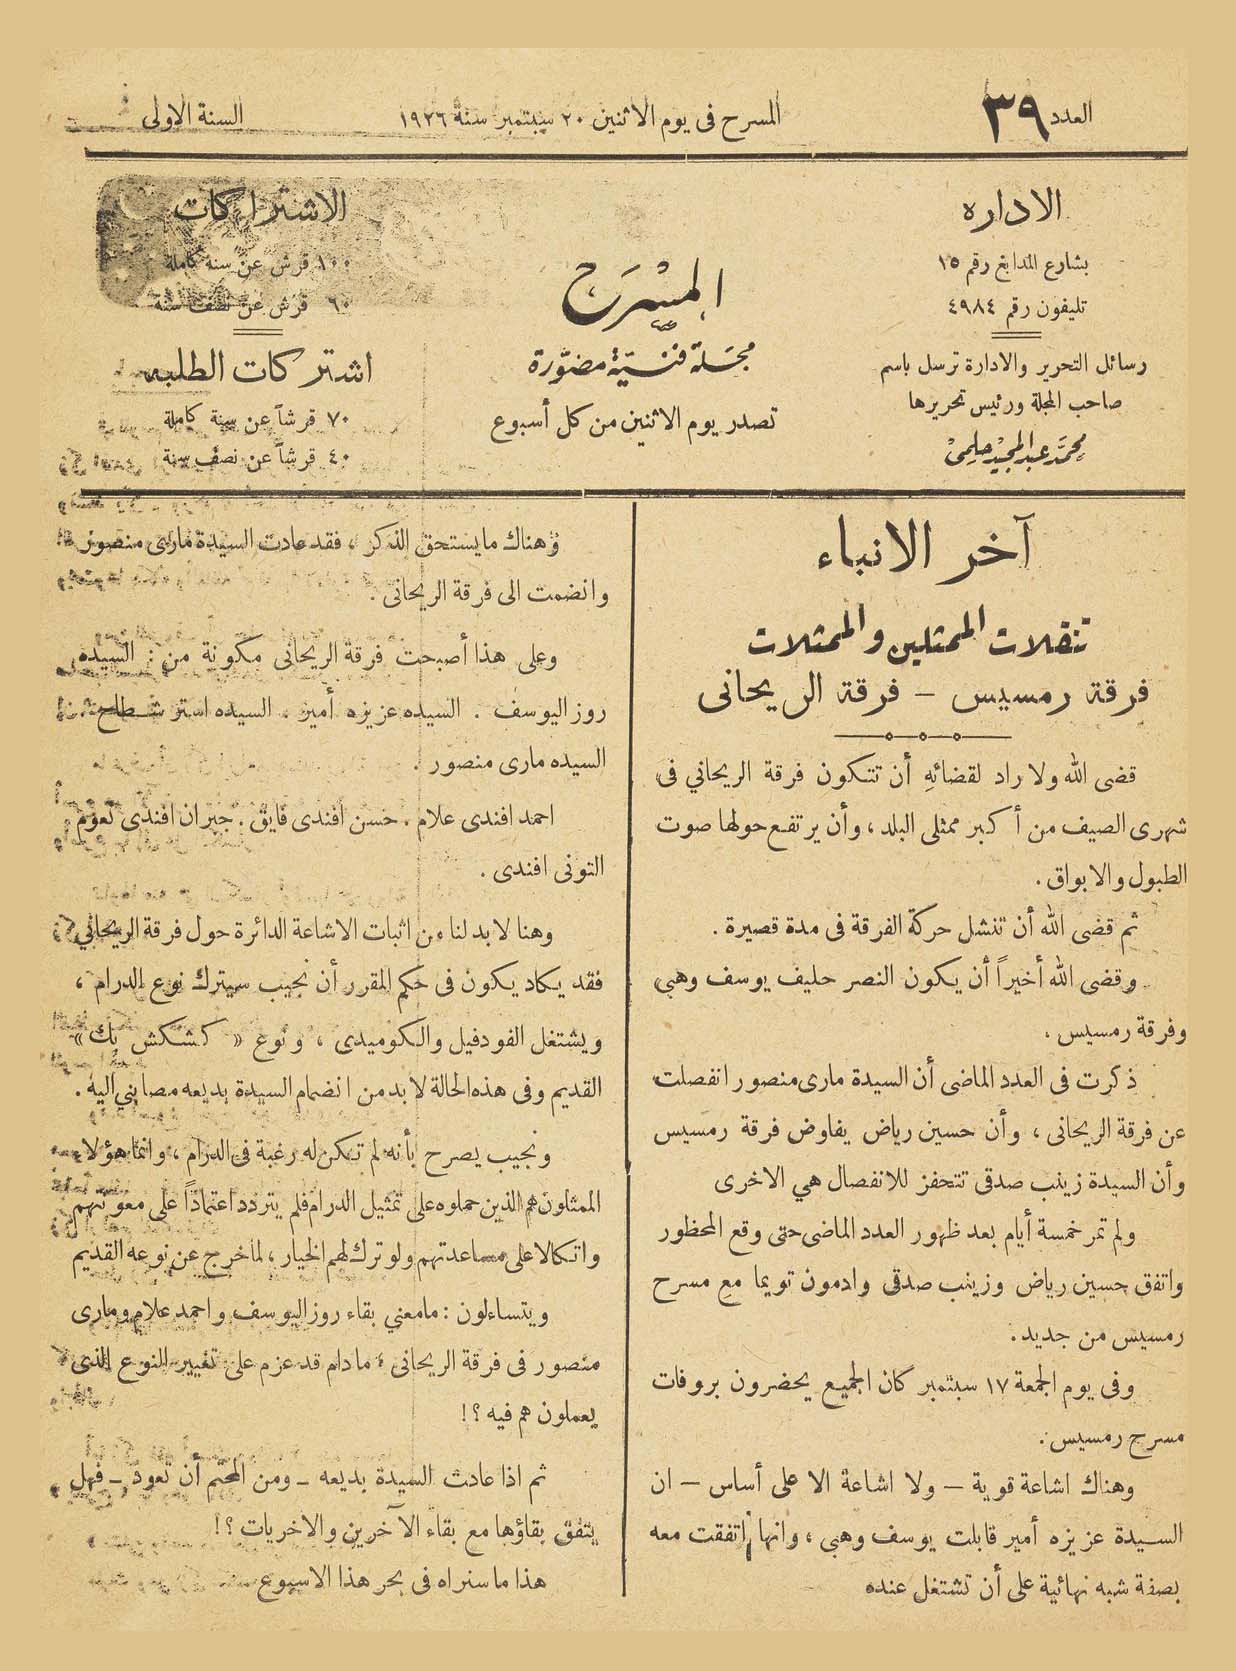 العدد ٣٩
المسرح فى يوم الاثنين ٢٠ سبتمبر سنة ١٩٢٦
السنة الاولى
الاداره
بشارع المدابغ رقم ١٥
تليفون رقم ٤٩٨٤
رسائل التحرير والادارة ترسل باسم
صاحب المجلة ورئيس تحريرها
محمد عبد المجيد حلمى
المسرح
مجلة فنية مصورة
تصدر يوم الاثنين من كل أسبوع
الاشتراكات
١٠٠ قرش عن سنة كاملة
٦٠ قرش عن نصف سنة
اشتركات الطلبه
٧٠ قرشاً عن سنة كاملة
٤٠ قرشاً عن نصف سنة
آخر الانباء
تنقلات الممثلين والممثلات
فرقة رمسيس – فرقة الريحانى
قضى الله ولا راد لقضائهِ أن تتكون فرقة الريحاني فى
شهرى الصيف من أكبر ممثلى البلد ، وأن يرتفع حولها صوت
الطبول والابواق .
ثم قضى الله أن تنشل حركة الفرقة فى مدة قصيرة .
وقضى الله أخيراً أن يكون النصر حليف يوسف وهبي
وفرقة رمسيس .
ذكرت فى العدد الماضى أن السيدة مارى منصور انفصلت
عن فرقة الريحانى ، وأن حسين رياض يفاوض فرقة رمسيس
وأن السيدة زينب صدقى تتحفز للانفصال هي الاخرى
ولم تمر خمسة أيام بعد ظهور العدد الماضى حتى وقع المحظور
واتفق حسين رياض وزينب صدقى وادمون تويما مع مسرح
رمسيس من جديد .
وفى يوم الجمعة ١٧ سبتمبر كان الجميع يحضرون بروفات
مسرح رمسيس .
وهناك اشاعة قوية – ولا اشاعة الا على أساس – ان
السيدة عزيزه أمير قابلت يوسف وهبي ، وانها اتفقت معه
بصفة شبه نهائية على أن تشتغل عنده
وهناك ما يستحق الذكر ، فقد عادت السيدة مارى منصور
وانضمت الى فرقة الريحانى .
وعلى هذا أصبحت فرقة الريحانى مكونة من : السيده
روز اليوسف . السيده عزيزه أمين . السيده استر شطاح .
السيده مارى منصور .
احمد افندى علام . حسن افندى فايق . جبران افندى نعوم
التونى افندى .
وهنا لابد لنا من اثبات الاشاعة الدائرة حول فرقة الريحاني
فقد يكاد يكون فى حكم المقرر أن نجيب سيترك نوع الدرام ،
ويشتغل الفودفيل والكوميدى ، ونوع « كشكش بك »
القديم وفى هذه الحالة لابد من انضمام السيدة بديعه مصابني اليه .
ونجيب يصرح بأنه لم تكن له رغبة فى الدرام ، وانما هؤلاء
الممثلون هم الذين حملوه على تمثيل الدرام فلم يتردد اعتماداً على معونتهم
واتكالا على مساعدتهم ولو ترك لهم الخيار ، لما خرج عن نوعه القديم
ويتساءلون : ما معني بقاء روز اليوسف واحمد علام ومارى
منصور فى فرقة الريحانى ، ما دام قد عزم على تغيير النوع الذى
يعملون هم فيه ؟!
ثم اذا عادت السيدة بديعه – ومن المحتم أن تعود – فهل
يتفق بقاؤها مع بقاء الآخرين والاخريات ؟!
هذا ما سنراه فى بحر هذا الاسبوع